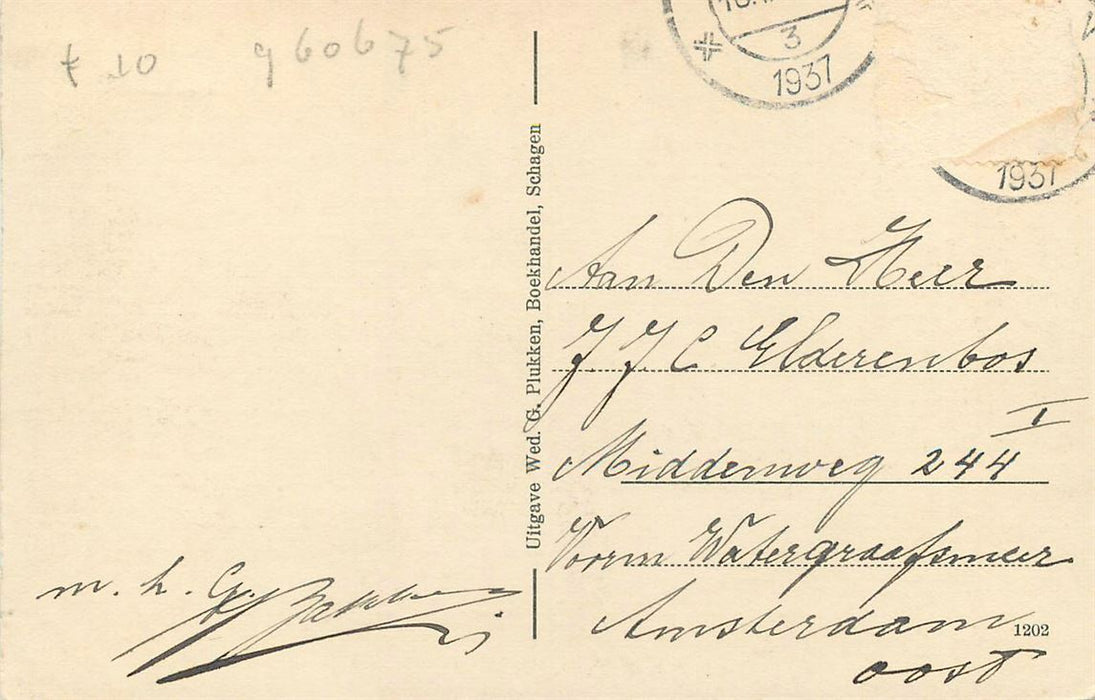 t 10 960675
3
1937
1937
Uitgave Wed. G. Plukken, Boekhandel, Schagen
Aan Den Heer
J J C Elderenbos
I
Middenweg 244
Voorm Watergraafsmeer
Amsterdam
oost
1202
m. h. G.